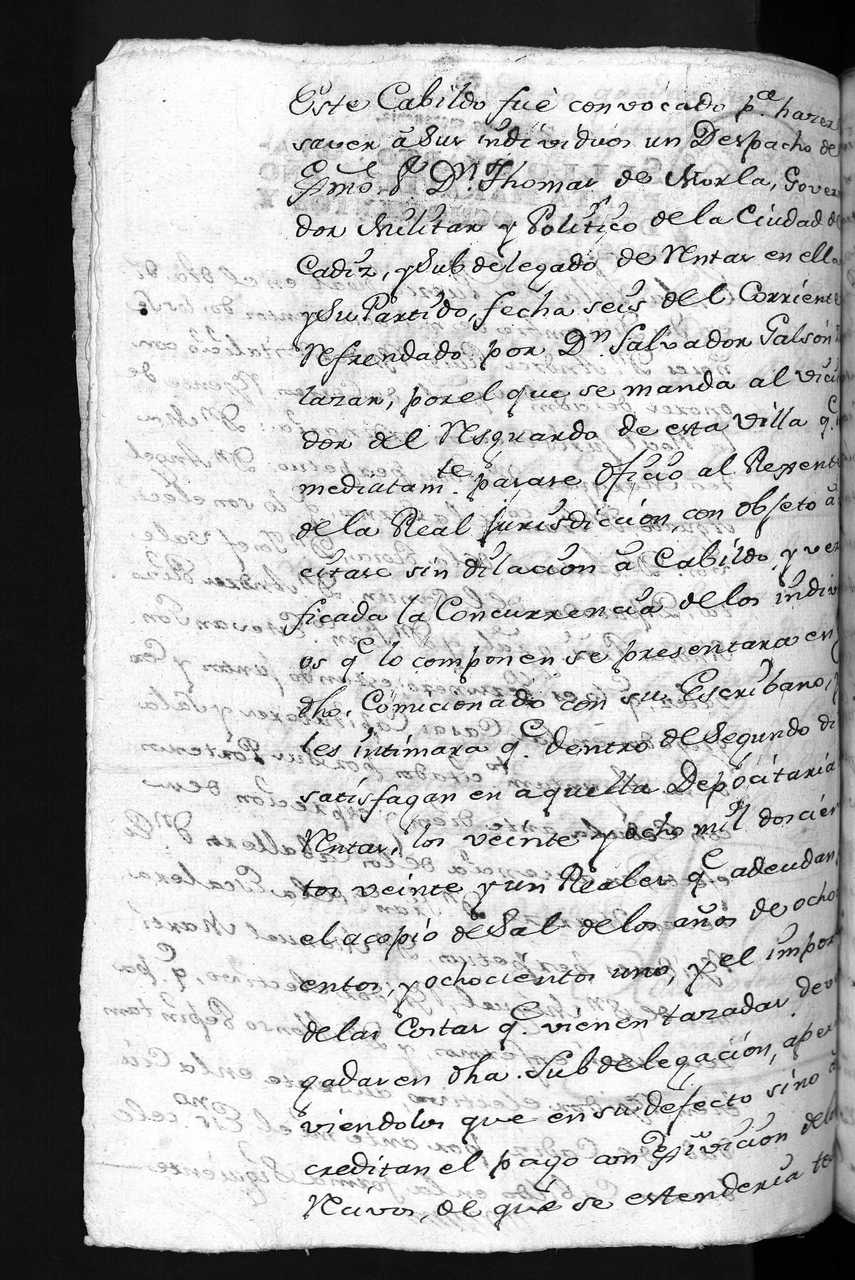 Este Cabildo fuè convocado p.ª hazer
saver â sus individuos un Despacho de
Exmô. S.r D.n Thomas de Morla, Gover
dor Militar y Politico de la Ciudad de
Cadiz, y Subdelegado de Rentas en ella
y Su Partido, fecha seis del Corriente
Refrendado por D.n Salvador Galsón
lazar, por el que se manda al visi
dor del Resguardo de esta villa q.e
mediatam.te pasase Oficio al Rexente
de la Real Jurisdiccion con Objeto â
citase sin dilacion â Cabildo, y ver
ficada la Concurrencia de los indiv
os q.e lo componen se presentara en
dho. Comicionado con su Escribano, y
les intimara q.e dentro de Segundo di
satisfagan en aquella Depocitaria
Rentas, los veinte y ocho mil doscien
tos veinte y un Reales q.e adeudan
el acopio de Sal de los años de ocho
entos, y ochocientos uno, y el impor
de las Costas q.e vienen tazadas dev
gadas en dha. Subdelegación, aper
viendolos que en su defecto sino â
creditan el pago con Exivicion de los
Recivos, del que se estenderia te